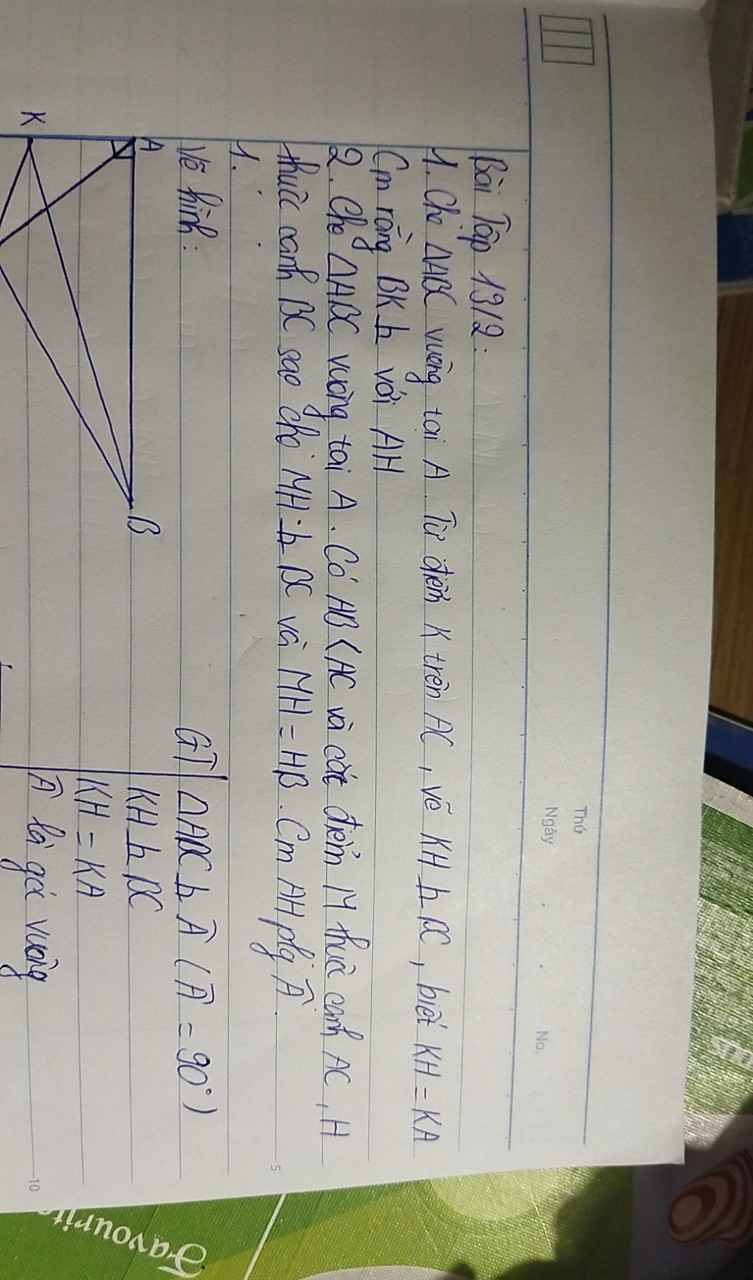 Thứ
Ngày
No.
Bài Tập 13/2:
1. Cho ΔABC vuông tại A. Từ điểm K trên AC, vẽ KH ⊥ BC, biết KH = KA
Cm rằng BK ⊥ với AH
2. Cho ΔABC vuông tại A. Có AB < AC và các điểm M thuộc cạnh AC, H
thuộc cạnh BC sao cho MH ⊥ BC và MH = HB. Cm AH phg Â.
1.
Vẽ hình:
GT ΔABC ⊥ Â (Â = 90°)
A B
KH ⊥ BC
KH = KA
K
Â là góc vuông
5
10
Favourit